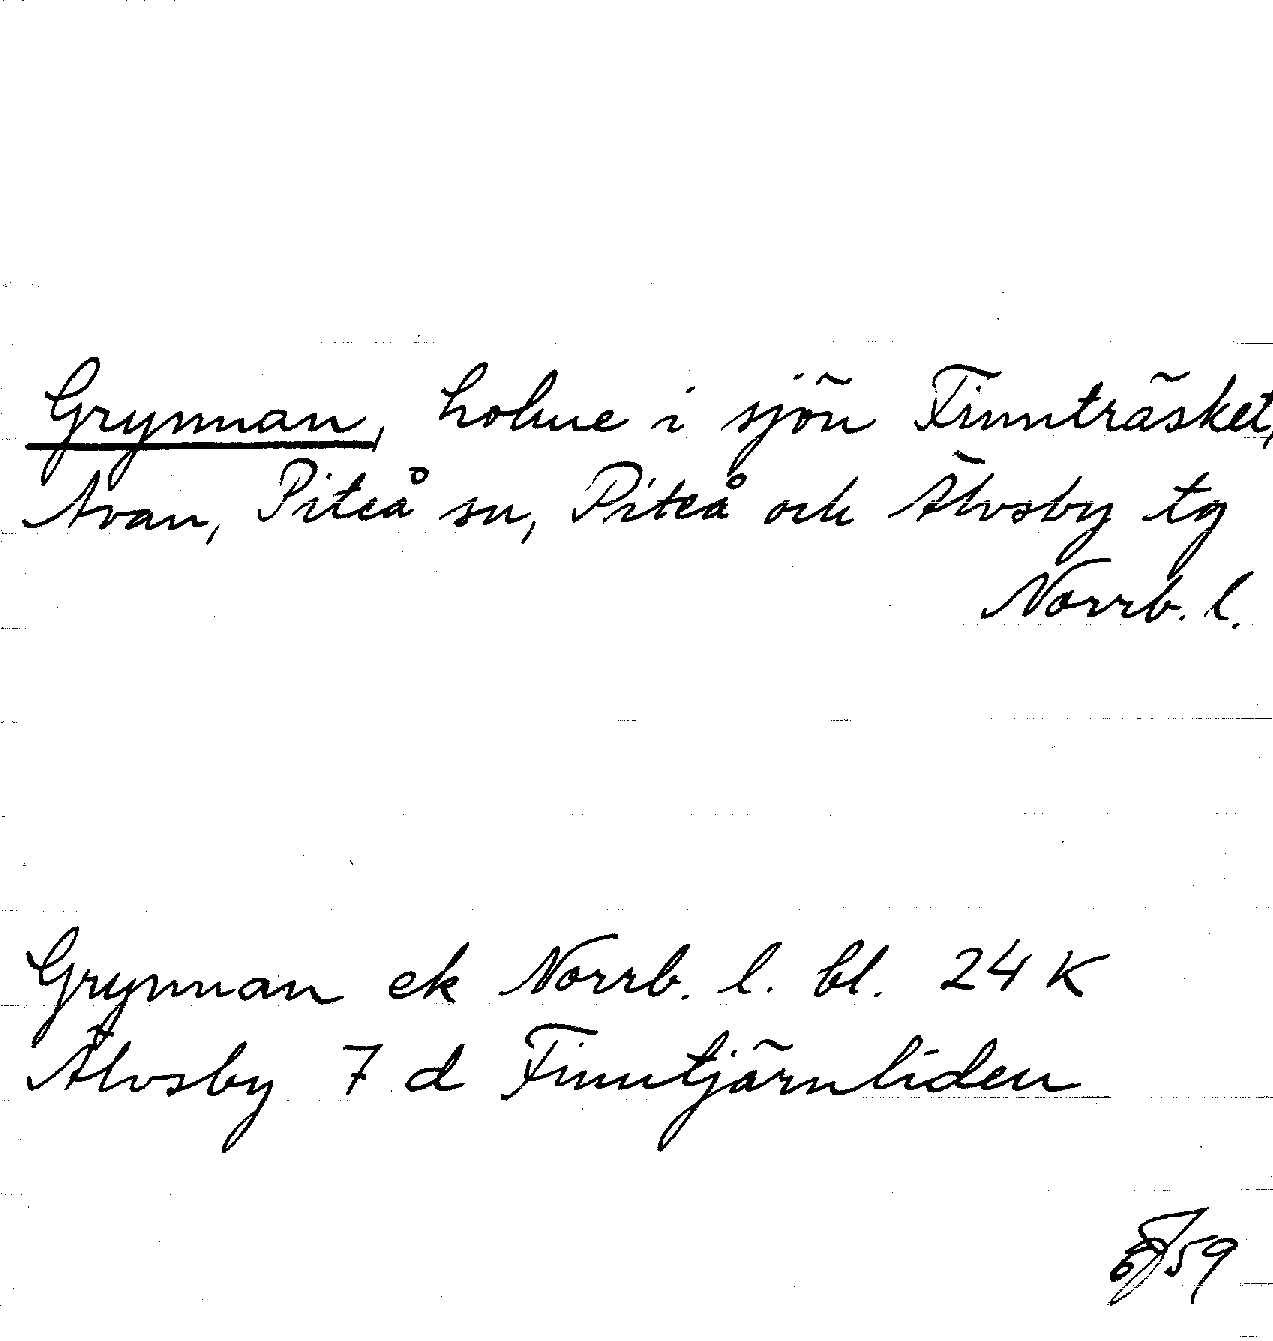 Grynnan, holme i sjön Finnträsket,
Avan, Piteå sn, Piteå och Älvsby tg
Norrb. l.
Grynnan ek Norrb. l. bl. 24 K
Älvsby 7 d Finntjärnliden
59